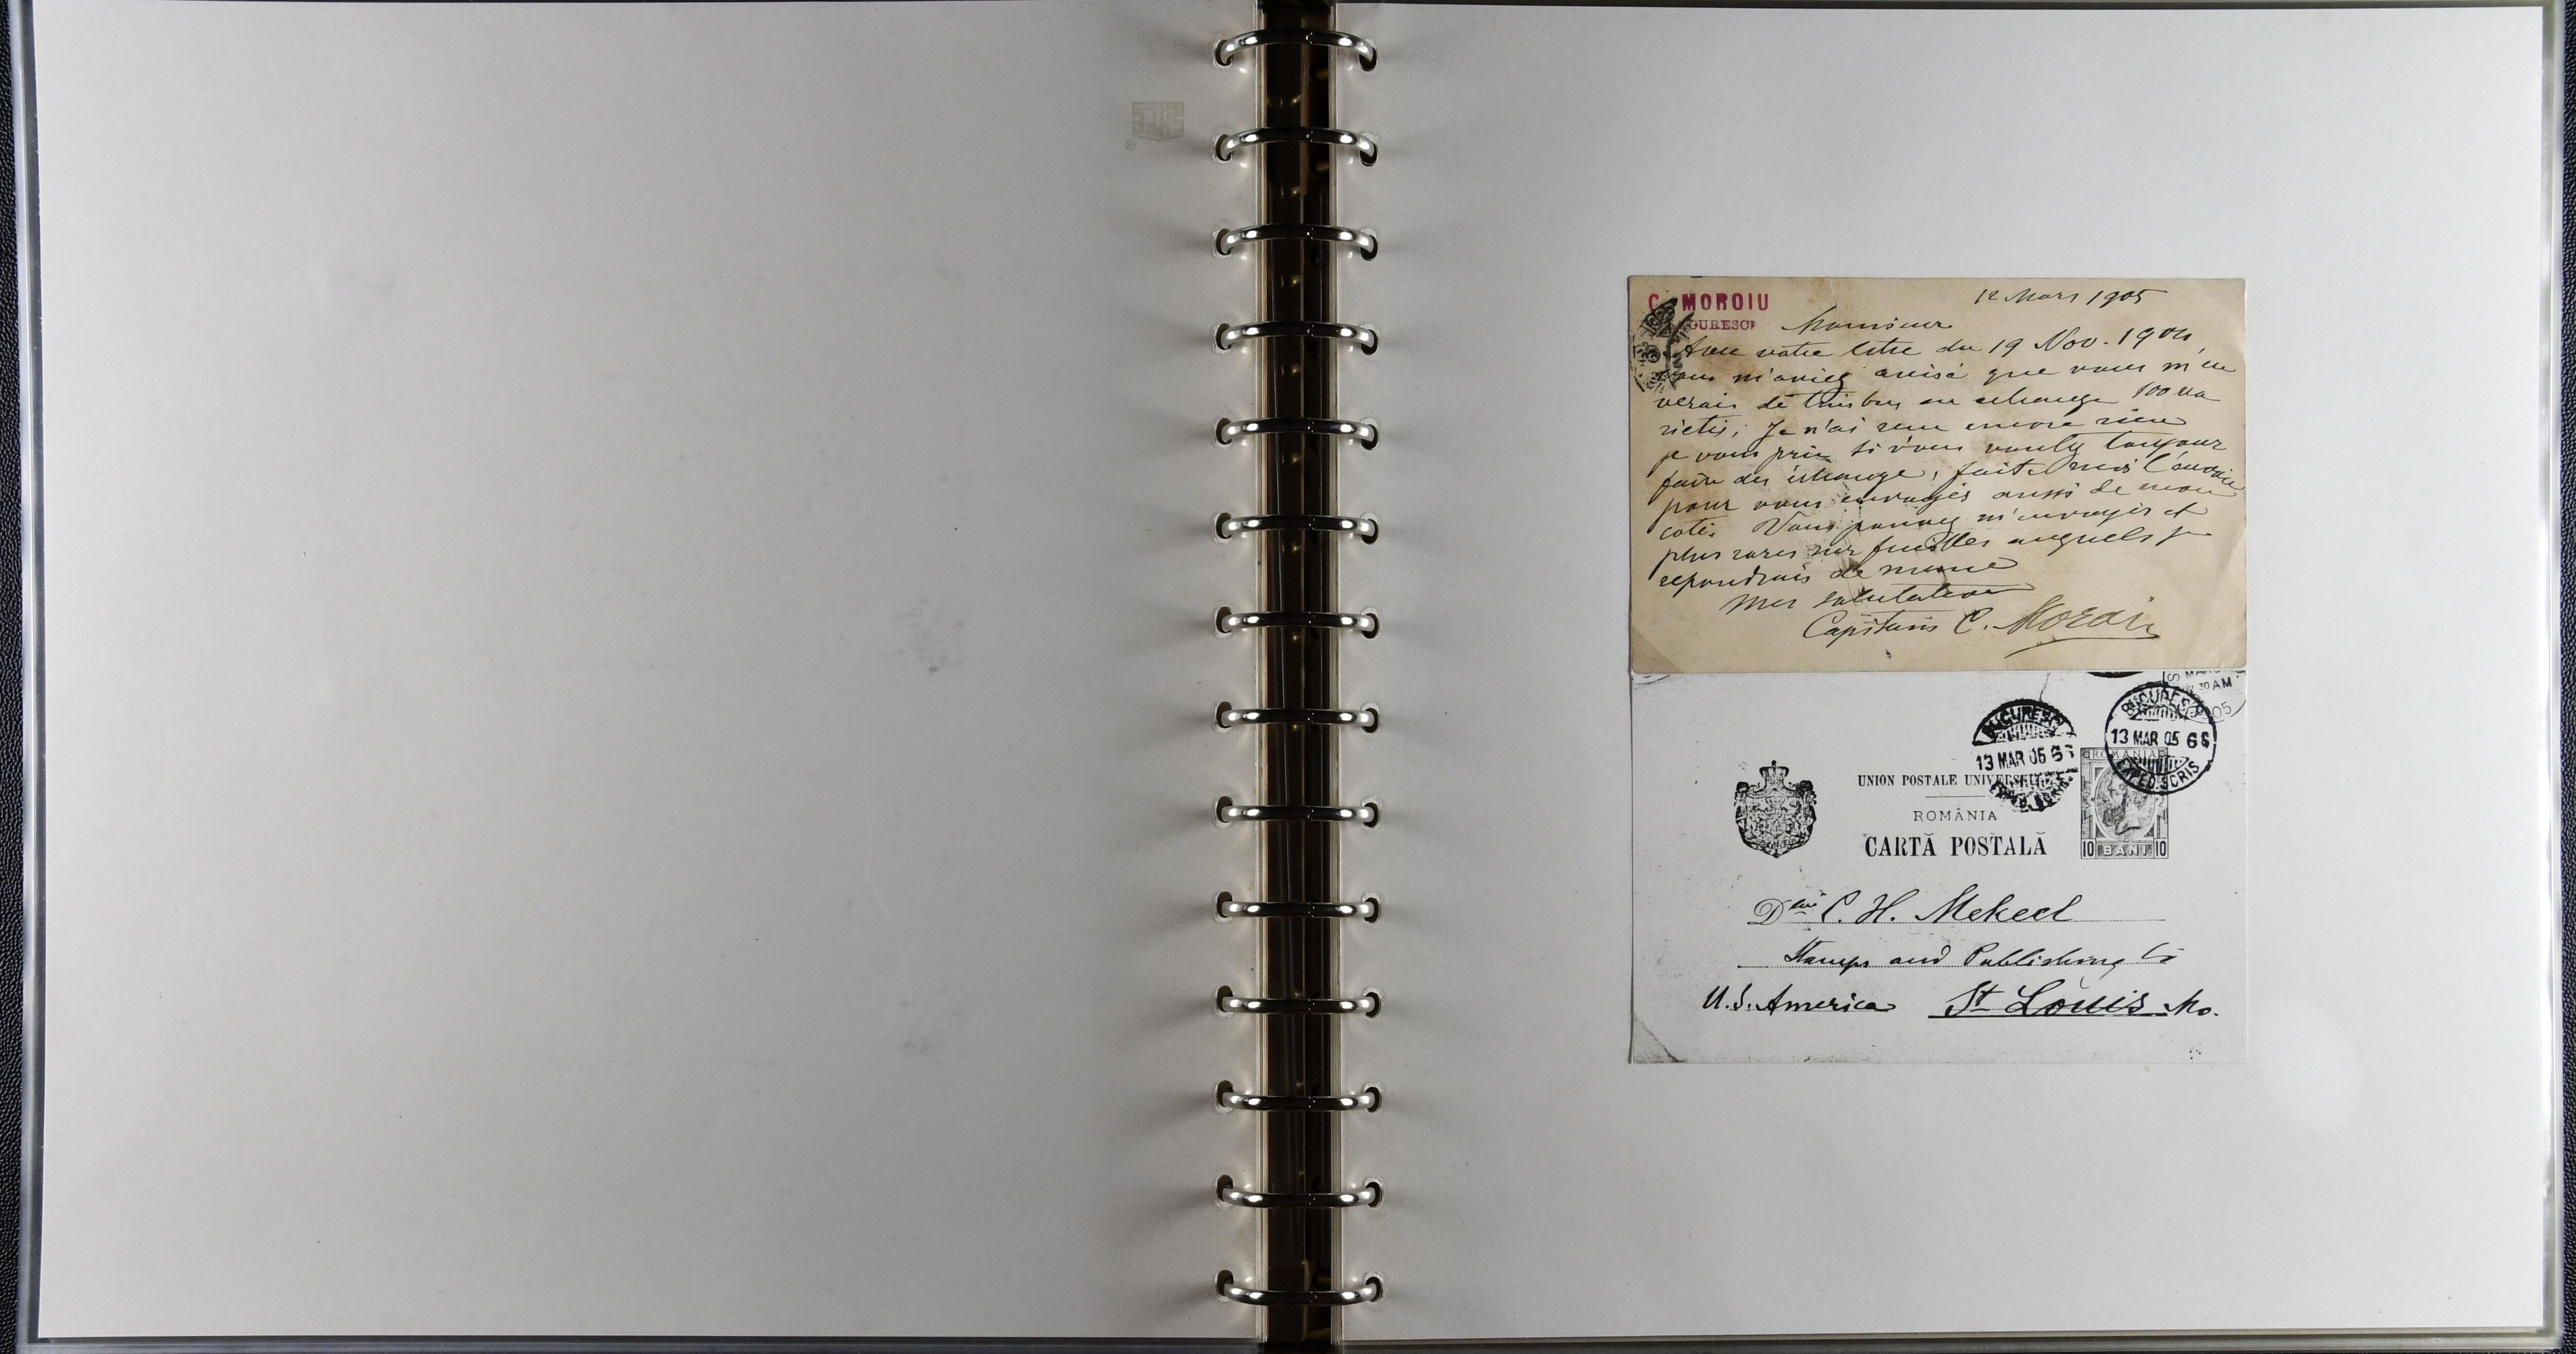 C. MOROIU
BUCURESCI
12 Mars 1905
Monsieur
Avec votre letre du 19 Nov. 1904
vous m'aviez avisé que vous m'en
verais de timbres en echange 100 va
rietis, Je n'ai reçu encore rien
je vous prie si vous voulez toujour
faire des échange, faite mois l'envoie
pour vous envoyés aussi de mon
coté. Vous pouvez m'envoyer et
plus rares sur feuilles auquels je
repondrais de meme
Mes salutation
Capitain C. Moroiu
30 AM
05
BUCURESCI
13 MAR 05 6S
BUCURESCI
13 MAR 05 6S
EXPED. SCRIS
UNION POSTALE UNIVERSELLE
ROMANIA
ROMÂNIA
CARTĂ POSTALĂ
10 BANI 10
Dlui C. H. Mekeel
Stamps and Publishing Co
U.S. America St Louis Mo.